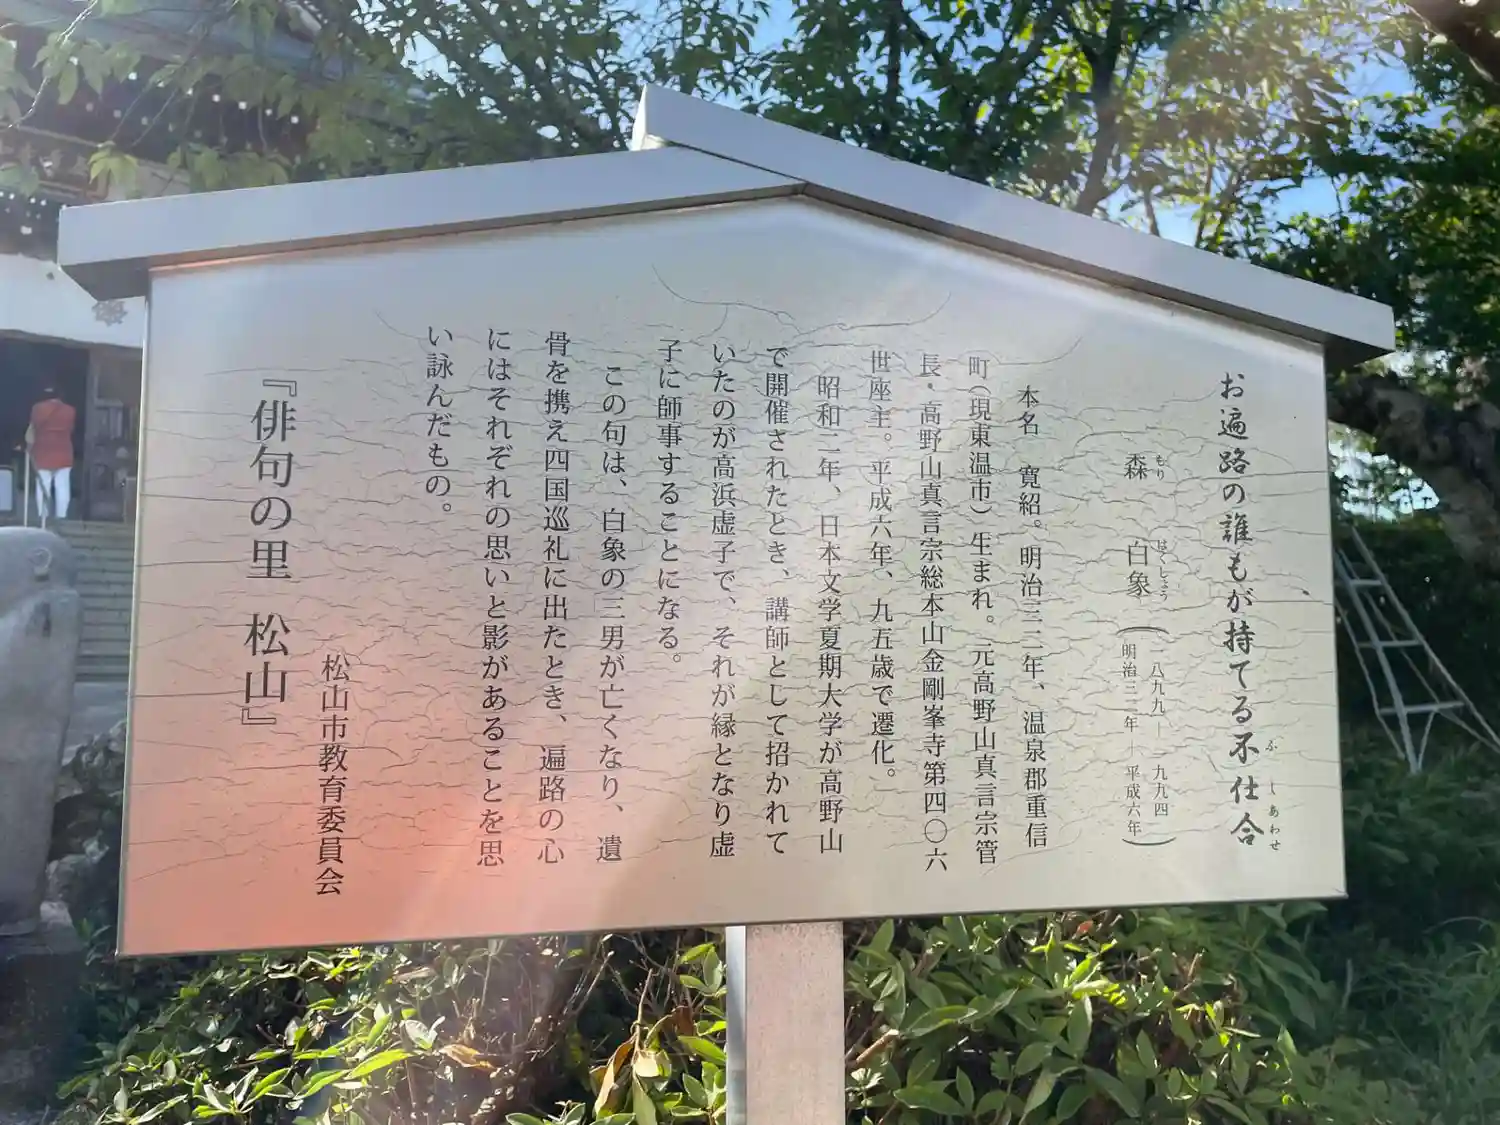 お遍路の誰もが持てる不仕合
ふしあわせ
森 白象
もり はくしょう
(一八九九―一九九四
明治三二年―平成六年)
本名 寛紹。明治三二年、温泉郡重信
町(現東温市)生まれ。元高野山真言宗管
長・高野山真言宗総本山金剛峯寺第四〇六
世座主。平成六年、九五歳で遷化。
昭和二年、日本文学夏期大学が高野山
で開催されたとき、講師として招かれて
いたのが高浜虚子で、それが縁となり虚
子に師事することになる。
この句は、白象の三男が亡くなり、遺
骨を携え四国巡礼に出たとき、遍路の心
にはそれぞれの思いと影があることを思
い詠んだもの。
松山市教育委員会
『俳句の里 松山』